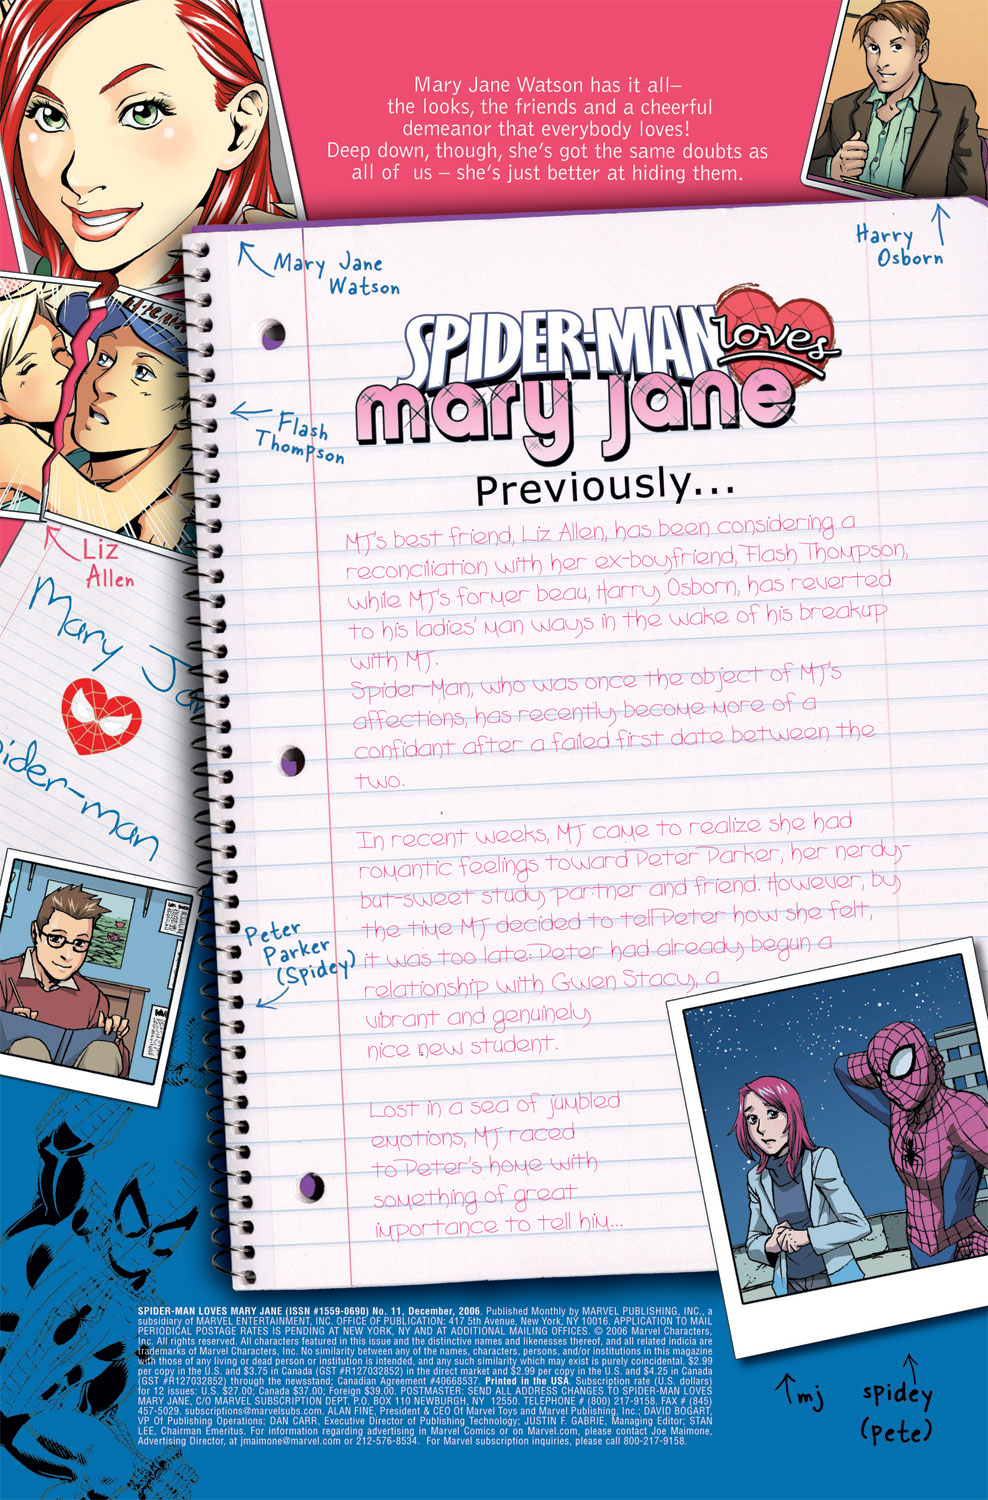 Mary Jane Watson has it all–
the looks, the friends and a cheerful
demeanor that everybody loves!
Deep down, though, she's got the same doubts as
all of us – she's just better at hiding them.
Mary Jane
Watson
Harry
Osborn
SPIDER-MAN loves
mary jane
Flash
Thompson
Previously...
Liz
Allen
MJ's best friend, Liz Allen, has been considering a
reconciliation with her ex-boyfriend, Flash Thompson,
while MJ's former beau, Harry Osborn, has reverted
to his ladies' man ways in the wake of his breakup
with MJ.
Spider-Man, who was once the object of MJ's
affections, has recently become more of a
confidant after a failed first date between the
two.
Mary Jan
spider-man
In recent weeks, MJ came to realize she had
romantic feelings toward Peter Parker, her nerdy-
but-sweet study partner and friend. However, by
the time MJ decided to tell Peter how she felt,
it was too late: Peter had already begun a
relationship with Gwen Stacy, a
vibrant and genuinely
nice new student.
Peter
Parker
(Spidey)
Lost in a sea of jumbled
emotions, MJ raced
to Peter's home with
something of great
importance to tell him...
SPIDER-MAN LOVES MARY JANE (ISSN #1559-0690) No. 11, December, 2006. Published Monthly by MARVEL PUBLISHING, INC., a
subsidiary of MARVEL ENTERTAINMENT, INC. OFFICE OF PUBLICATION: 417 5th Avenue, New York, NY 10016. APPLICATION TO MAIL
PERIODICAL POSTAGE RATES IS PENDING AT NEW YORK, NY AND AT ADDITIONAL MAILING OFFICES. © 2006 Marvel Characters,
Inc. All rights reserved. All characters featured in this issue and the distinctive names and likenesses thereof, and all related indicia are
trademarks of Marvel Characters, Inc. No similarity between any of the names, characters, persons, and/or institutions in this magazine
with those of any living or dead person or institution is intended, and any such similarity which may exist is purely coincidental. $2.99
per copy in the U.S. and $3.75 in Canada (GST #R127032852) in the direct market and $2.99 per copy in the U.S. and $4.25 in Canada
(GST #R127032852) through the newsstand; Canadian Agreement #40668537. Printed in the USA. Subscription rate (U.S. dollars)
for 12 issues: U.S. $27.00; Canada $37.00; Foreign $39.00. POSTMASTER: SEND ALL ADDRESS CHANGES TO SPIDER-MAN LOVES
MARY JANE, C/O MARVEL SUBSCRIPTION DEPT. P.O. BOX 110 NEWBURGH, NY 12550. TELEPHONE # (800) 217-9158. FAX # (845)
457-5029. subscriptions@marvelsubs.com. ALAN FINE, President & CEO Of Marvel Toys and Marvel Publishing, Inc.; DAVID BOGART,
VP Of Publishing Operations; DAN CARR, Executive Director of Publishing Technology; JUSTIN F. GABRIE, Managing Editor; STAN
LEE, Chairman Emeritus. For information regarding advertising in Marvel Comics or on Marvel.com, please contact Joe Maimone,
Advertising Director, at jmaimone@marvel.com or 212-576-8534. For Marvel subscription inquiries, please call 800-217-9158.
mj
spidey
(pete)